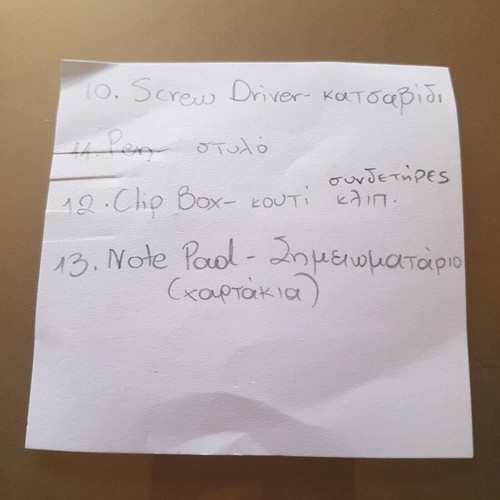 10. Screw Driver - κατσαβίδι
11. Pen στυλό
συνδετήρες
12. Clip Box - κουτί κλιπ.
13. Note Pad - Σημειωματάριο
(χαρτάκια)